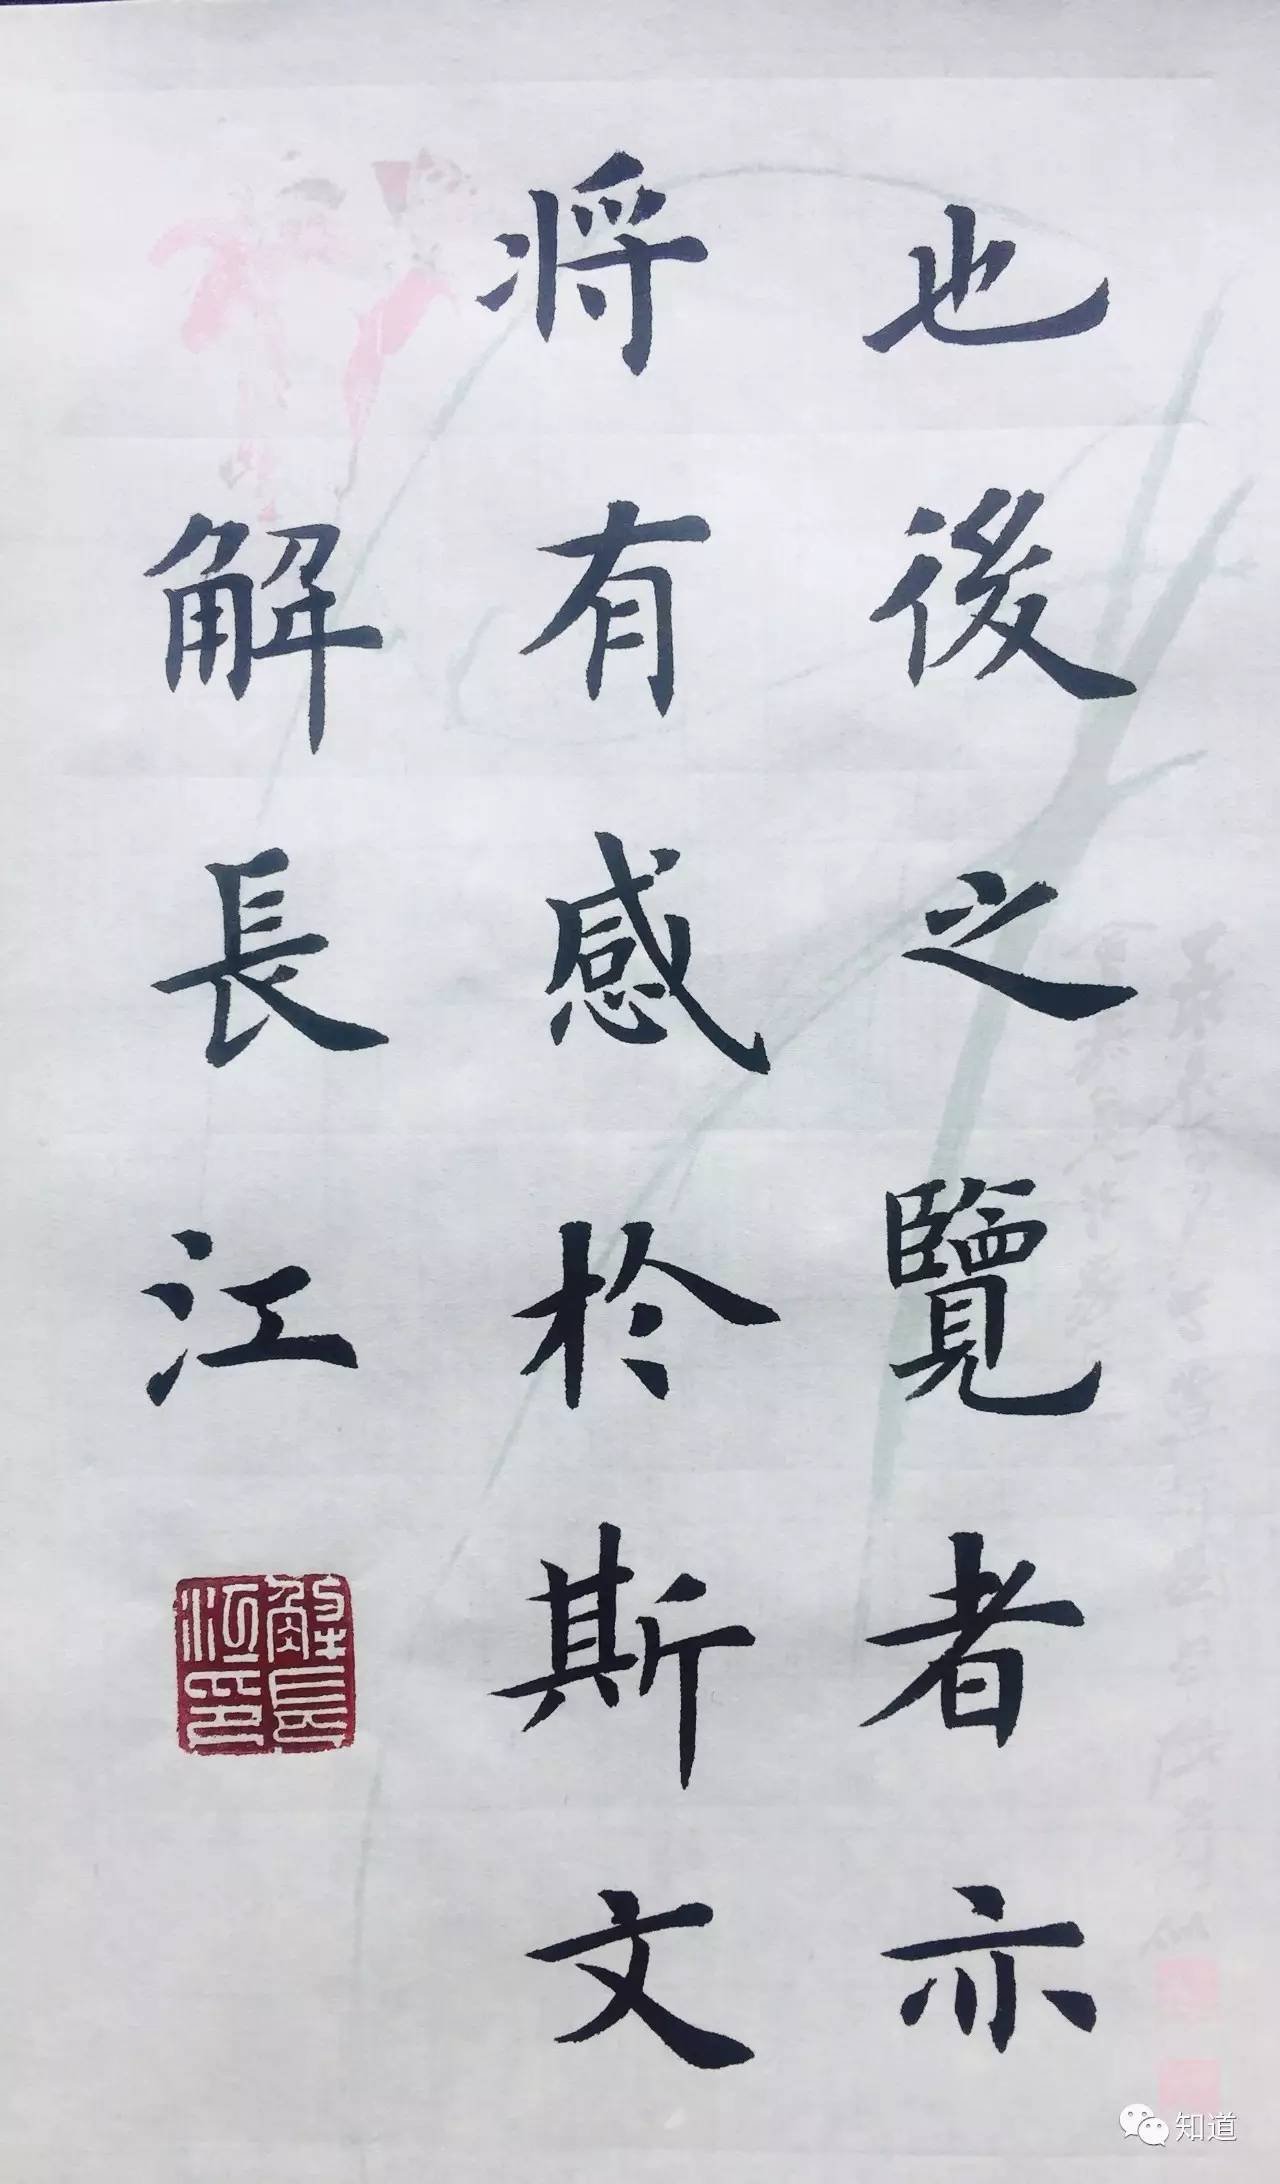 也後之覽者亦
将有感於斯文
解長江
解長江印
知道